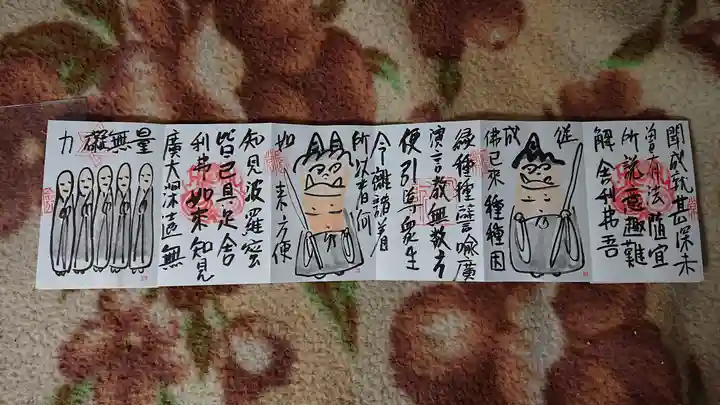 聞成就甚深未
曽有法随宜
所説意趣難
解舎利弗吾
従
成
佛已來種種因
縁種種譬喩廣
演言教無数方
便引導衆生
令離諸着
所以者何
如来方便
知見波羅蜜
皆已具足舎
利弗如来知見
廣大深遠無
量無礙力